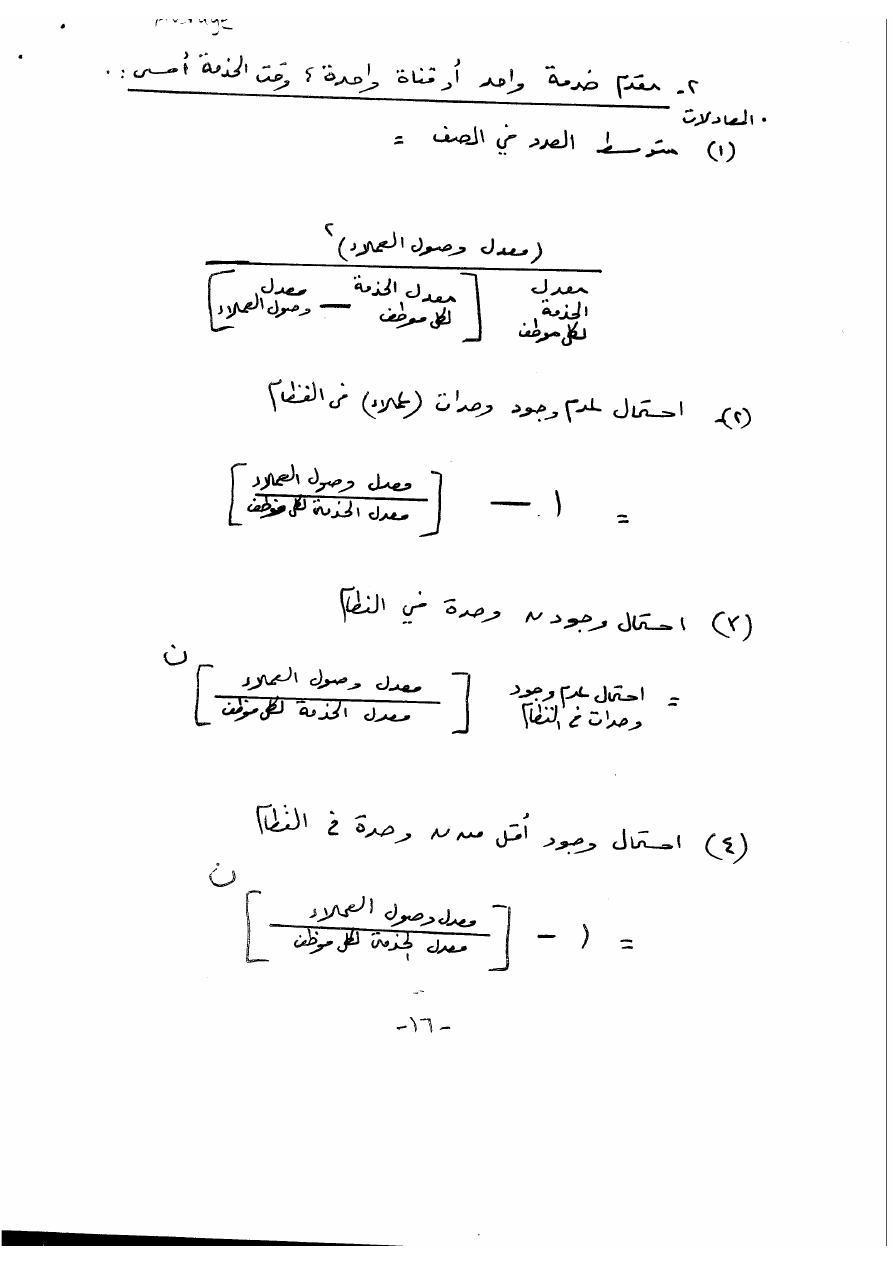 Average
٢- مقدم خدمة واحد أو قناة واحدة ، وقت الخدمة أسى :
• المعادلات
(١) متوسط العدد في الصف =
(معدل وصول العملاء)٢
معدل الخدمة لكل موظف [معدل الخدمة لكل موظف — معدل وصول العملاء]
(٢) احتمال عدم وجود وحدات (عملاء) في النظام
= ١ — [معدل وصول العملاء
معدل الخدمة لكل موظف]
(٣) احتمال وجود ن وحدة في النظام
= احتمال عدم وجود وحدات في النظام [معدل وصول العملاء
معدل الخدمة لكل موظف] ن
(٤) احتمال وجود أقل من ن وحدة في النظام
= ١ - [معدل وصول العملاء
معدل الخدمة لكل موظف] ن
-١٦-